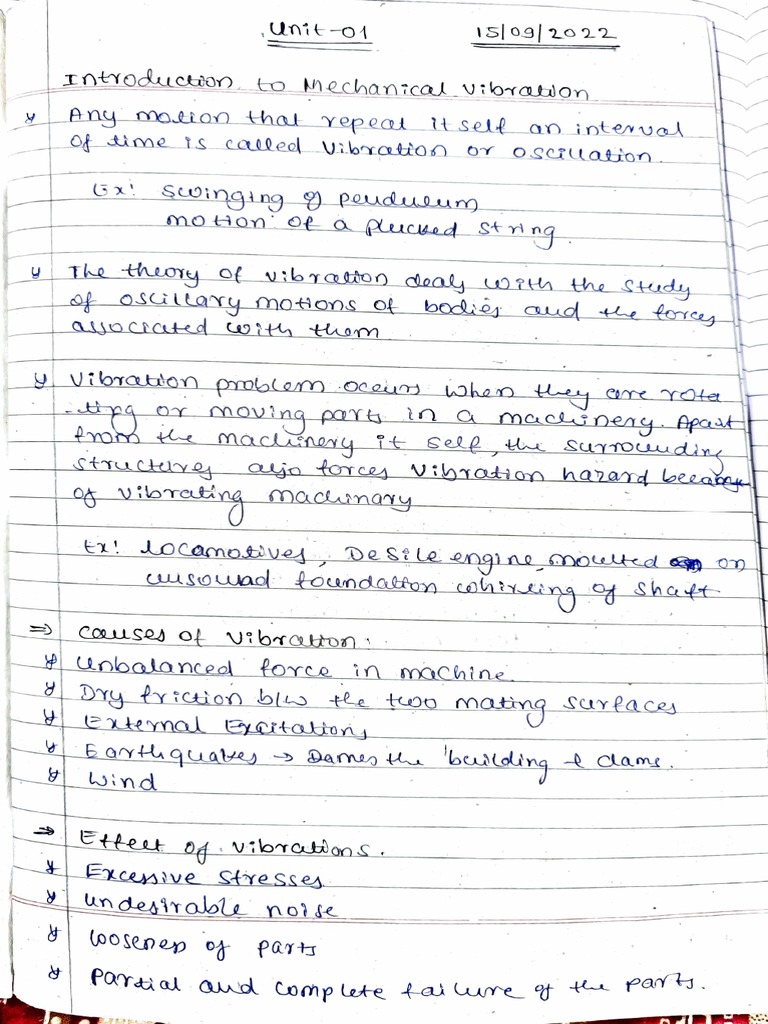 Unit-01 15/09/2022
Introduction to Mechanical Vibration
* Any motion that repeat it self an interval
of time is called Vibration or oscillation.
Ex: swinging of pendulum
motion of a plucked string.
* The theory of vibration deals with the study
of oscillary motions of bodies and the forces
associated with them
* Vibration problem occurs when they are rota
-ting or moving parts in a machinery. Apart
from the machinery it self, the surrounding
structures also forces vibration hazard because
of vibrating machinary
Ex: locomotives, Desile engine mounted on
unsound foundation whirling of shaft
⇒ causes of vibration:
* Unbalanced force in machine
* Dry friction b/w the two mating surfaces
* External Excitations
* Earthquakes → Dames the building & dams.
* Wind
⇒ Effect of vibrations.
* Excessive stresses
* undesirable noise
* Looseness of parts
* Partial and complete failure of the parts.